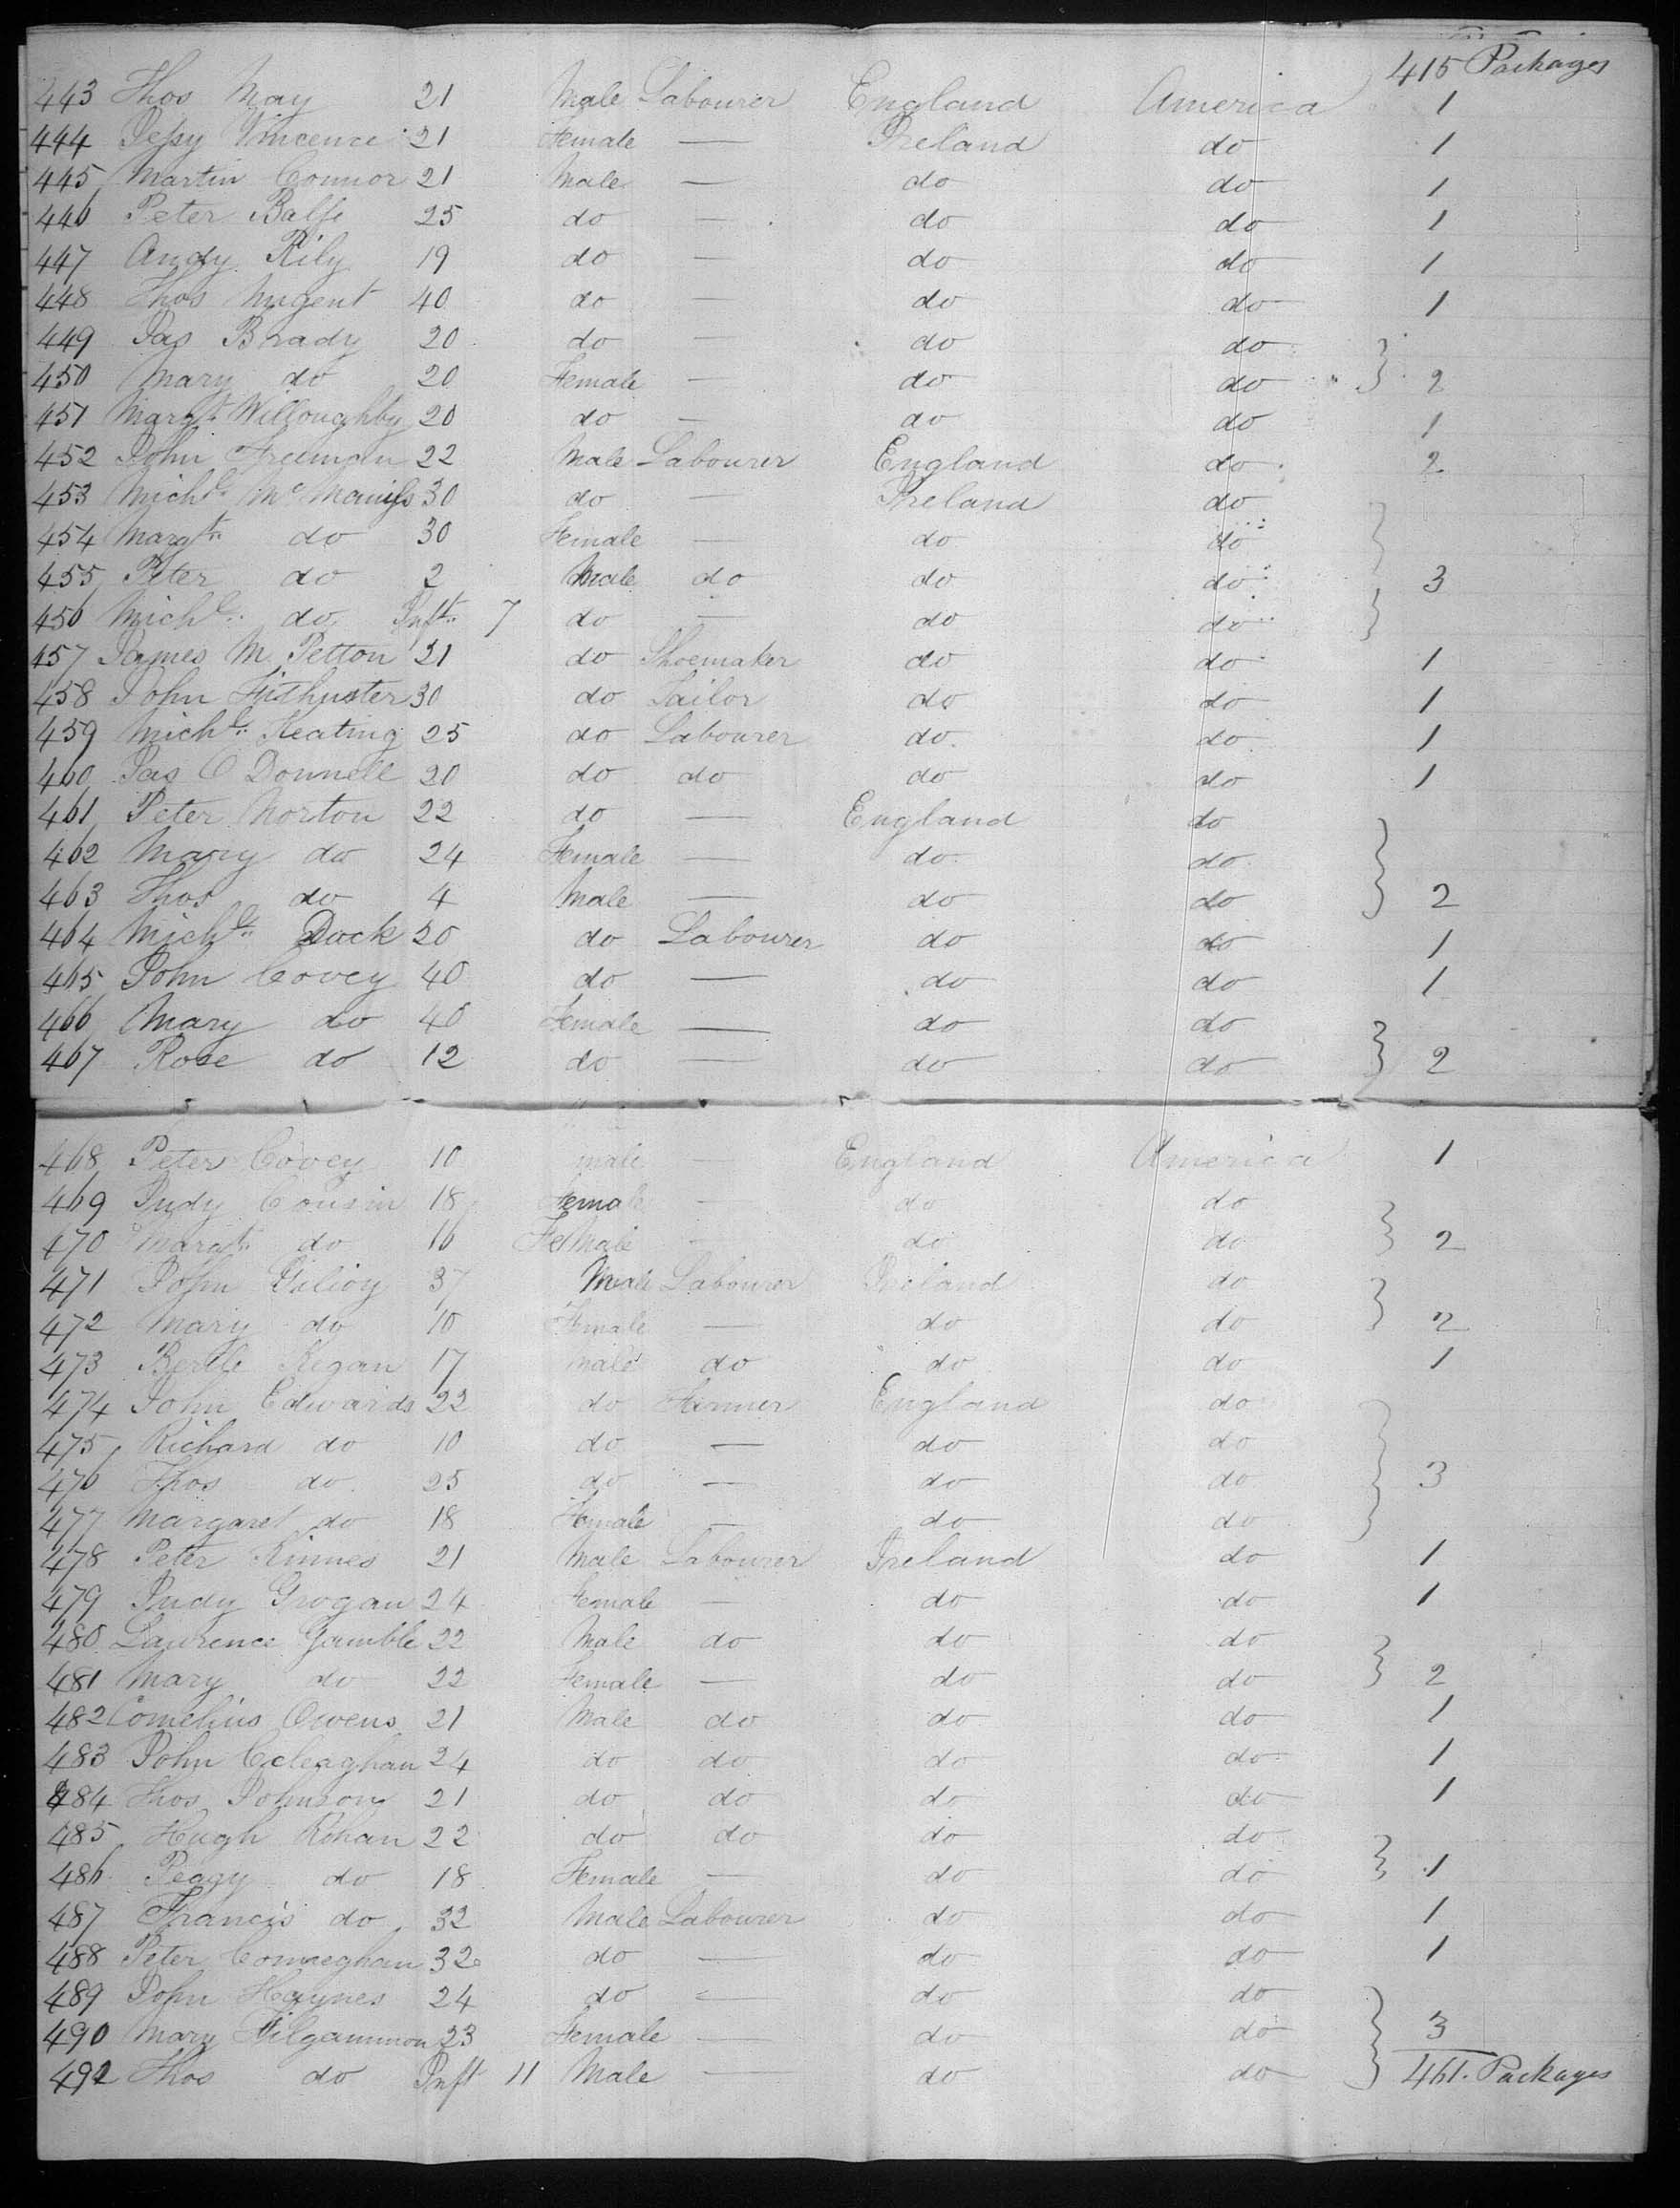 415 Packages
443 Thos May 21 Male Labourer England America 1
444 Jessy Vincence 21 Female — Ireland do 1
445 Martin Connor 21 Male — do do 1
446 Peter Balfe 25 do — do do 1
447 Andy Rily 19 do — do do 1
448 Thos Nugent 40 do — do do 1
449 Jas Brady 20 do — do do
450 Mary do 20 Female — do do 2
451 Margt Willoughby 20 do — do do 1
452 John Freeman 22 Male Labourer England do 2
453 Michl Mc 30 do — Ireland do
454 Margt do 30 Female — do do
455 Peter do 2 Male do do do 3
456 Michl do Inft 7 do — do do
457 James M Petton 21 do Shoemaker do do 1
458 John 30 do Tailor do do 1
459 Michl Keating 25 do Labourer do do 1
460 Jas O Donnell 20 do do do do 1
461 Peter Norton 22 do — England do
462 Mary do 24 Female — do do
463 Thos do 4 Male — do do 2
464 Michl Dock 20 do Labourer do do 1
465 John Covey 40 do — do do 1
466 Mary do 40 Female — do do
467 Rose do 12 do — do do 2
468 Peter Covey 10 male — England America 1
469 Judy Cousin 18 Female — do do
470 Margt do 16 Female — do do 2
471 John 37 Male Labourer Ireland do
472 Mary do 10 Female — do do 2
473 Bertle Kegan 17 Male do do do 1
474 John Edwards 22 do Farmer England do
475 Richard do 10 do — do do
476 Thos do 25 do — do do 3
477 Margaret do 18 Female — do do
478 Peter Kinnes 21 Male Labourer Ireland do 1
479 Judy Grogan 24 Female — do do 1
480 Laurence Gamble 22 Male do do do
481 Mary do 22 Female — do do 2
482 Cornelius Owens 21 Male do do do 1
483 John Celeaghan 24 do do do do 1
484 Thos Johnson 21 do do do do 1
485 Hugh Rohan 22 do do do do
486 Peggy do 18 Female — do do 1
487 Francis do 32 Male Labourer do do 1
488 Peter 32 do — do do 1
489 John Haynes 24 do — do do
490 Mary Filgammon 23 Female — do do 3
491 Thos do Inft 11 Male — do do 461. Packages